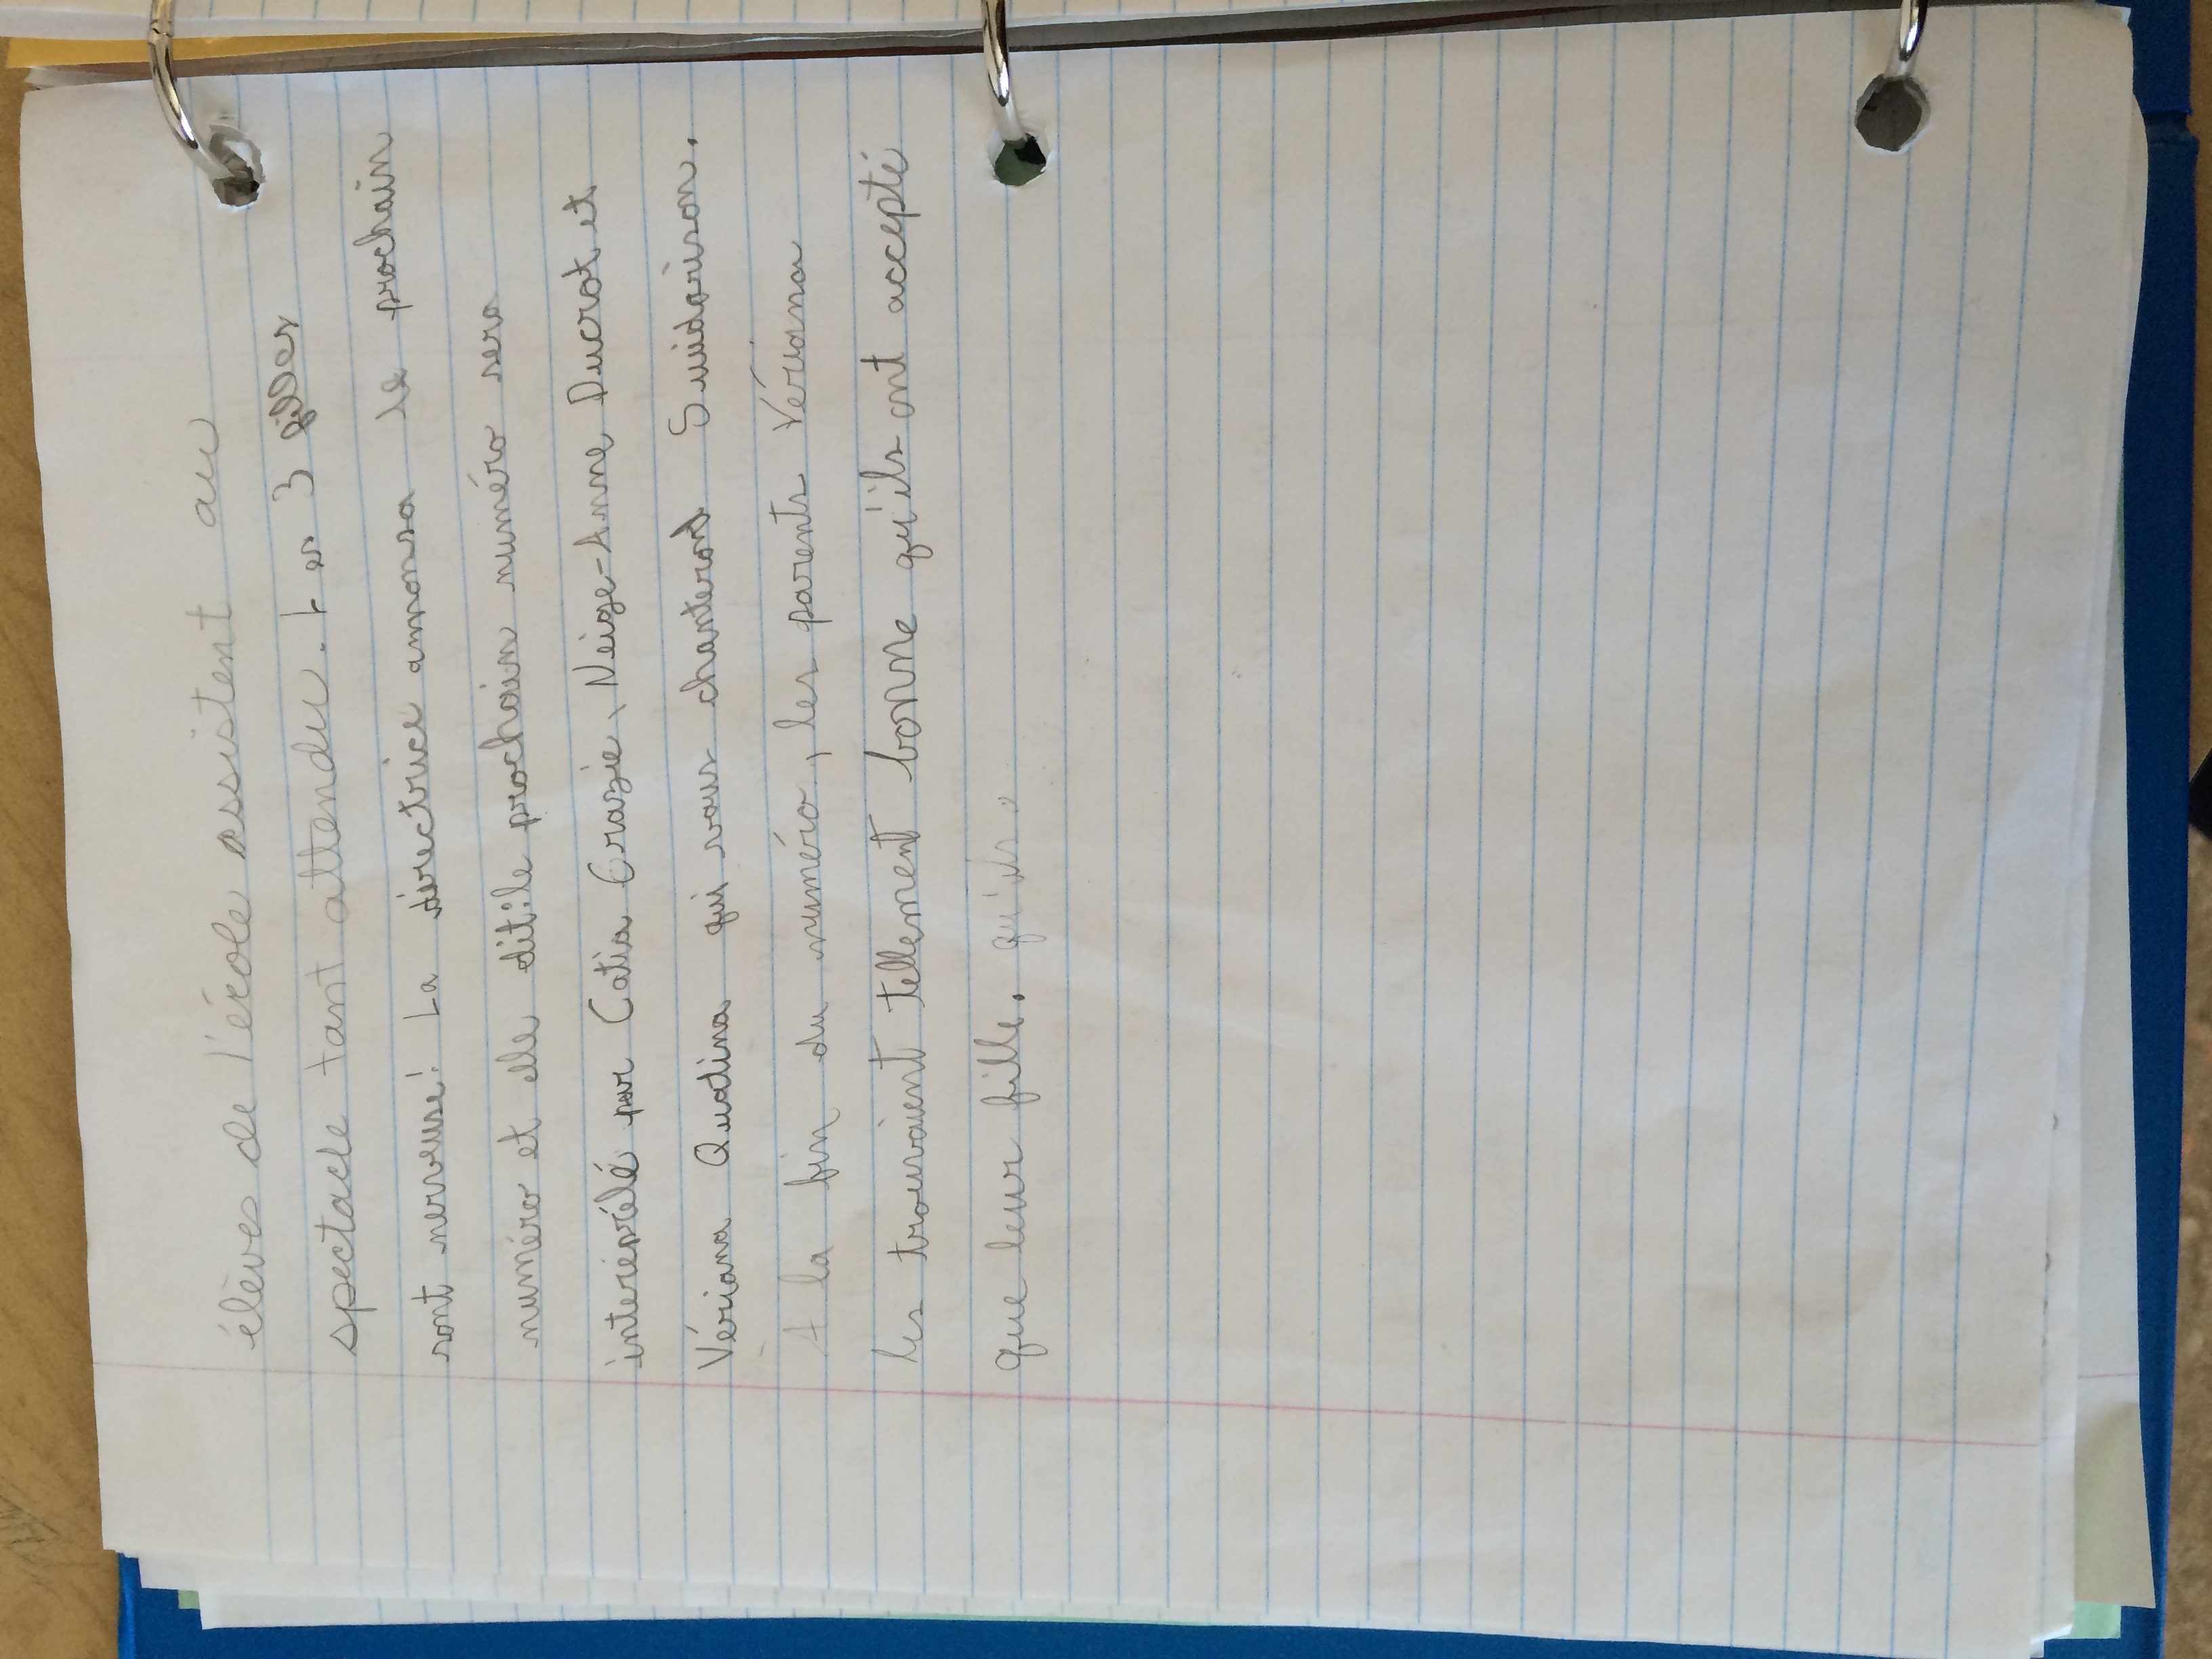 élèves de l'école assistent au
spectacle tant attendu. Les 3 filles
sont nerveuse! La directrice annonsa le prochain
numéro et elle dit: le prochain numéro sera
interiprété par Catia Grazie, Neige-Anne Ducrot et
Vériana Quodina qui vous chanteront Suidorison.
A la fin du numéro, les parents Vériana
les trouvaient tellement bonne qu'ils ont accepté
que leur fille. qu'ils.